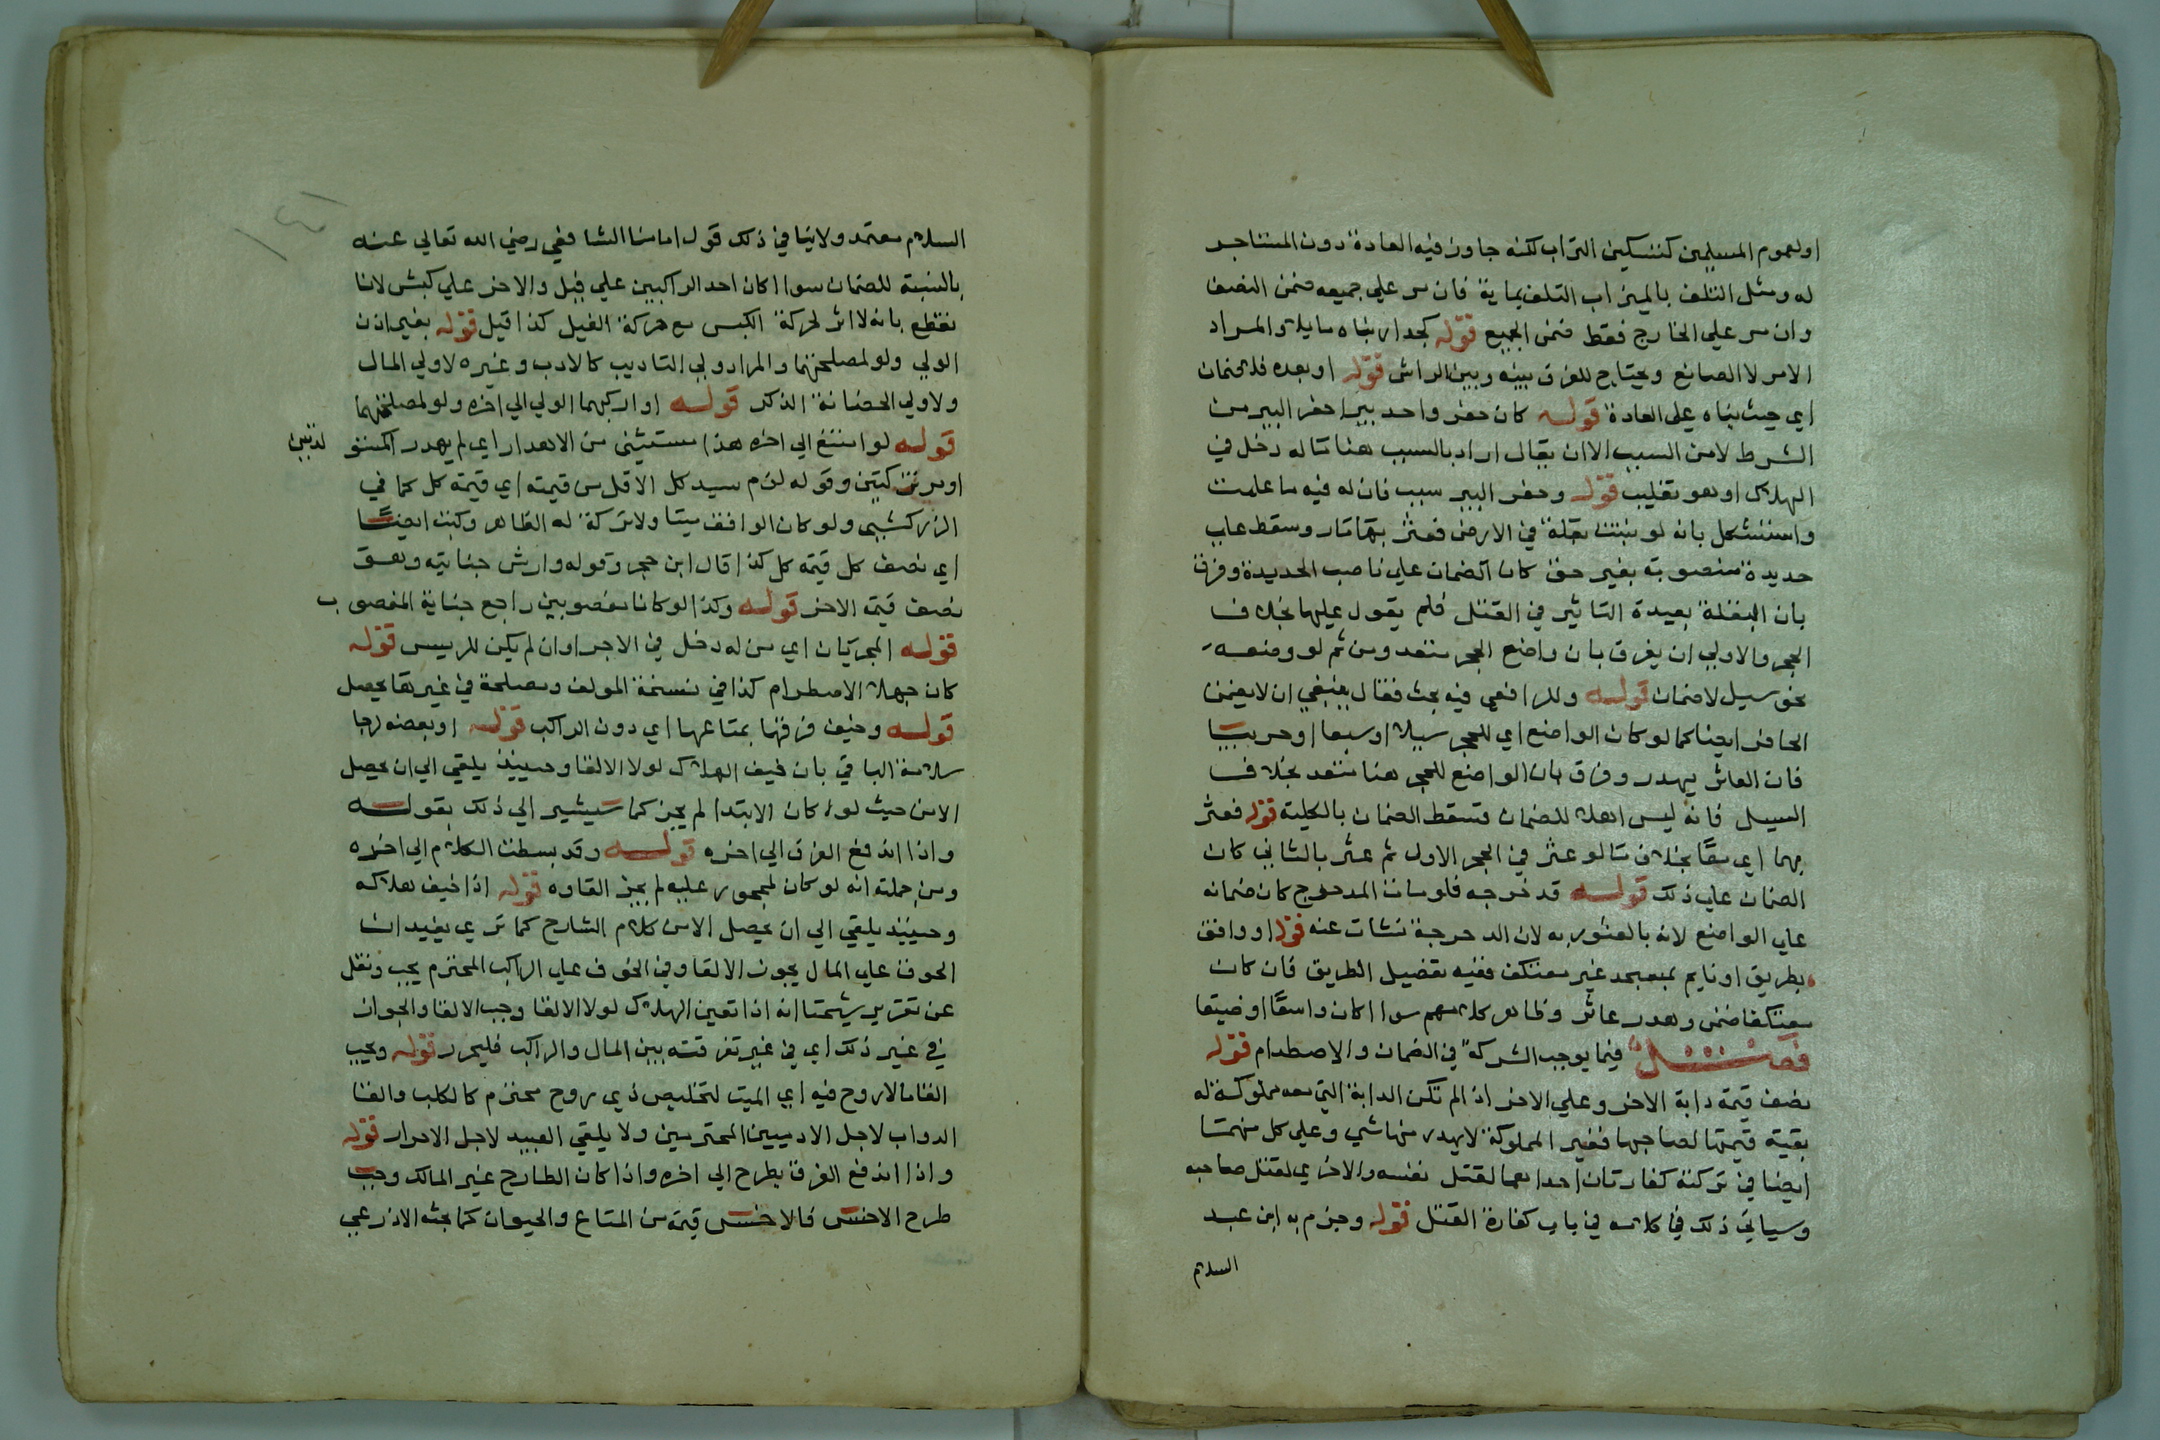 او لعموم المسلمين كتسكين التراب لكنه جاوز فيه العادة دون المستاجر
له ومثل التلف بالميزاب التلف بمايه فان مر علي جميعه ضمن النصف
وان مر علي الخارج فقط ضمن الجميع قوله كجدار بناه مايلا والمراد
الامر لا الصانع ويحتاج للفرق بينه وبين الراش قوله او بعده فلا ضمان
اي حيث بناه علي العادة قوله كان حفر واحد بيرا حفر البير من
الشرط لا من السبب الا ان يقال اراد بالسبب هنا ما له دخل في
الهلاك او هو تغليب قوله وحفر البير سبب فان له فيه ما علمت
واستشكل بانه لو نبتت بقلة في الارض فعثر بها مار وسقط علي
حديدة منصوبة بغير حق كان الضمان علي ناصب الحديدة وفرق
بان البقلة بعيدة التاثير في القتل فلم يقول عليها بخلاف
الحجر والاولي ان يفرق بان واضع الحجر متعد ومن ثم لو وضعه
نحو سيل لا ضمان قوله وللرافعي فيه بحث فقال ينبغي ان لا يضمن
الحافر ايضا كما لو كان الواضع اي للحجر سيلا او سبعا او حربيا
فان العاثر يهدر وفرق بان الواضع للحجر هنا متعد بخلاف
السيل فانه ليس اهلا للضمان فسقط الضمان بالكلية قوله فعثر
بهما اي معا بخلاف ما لو عثر في الحجر الاول ثم عثر بالثاني كان
الضمان علي ذلك قوله قد خرجه فلو مات المدحرج كان ضمانه
علي الواضع لانه بالعثور به لان الدحرجة نشات عنه قوله او وافق
بطريق او نايم بمسجد غير معتكف ففيه تفصيل الطريق فان كان
معتكفا ضمن وهدر عاثر وظاهر كلامهم سوا اكان واسعا او ضيقا
فصل فيما يوجب الشركة في الضمان والاصطدام قوله
نصف قيمة دابة الاخر وعلي الاخر اذ الم تكن الدابة التي معه مملوكة له
بقية قيمتها لصاحبها فغير المملوكة لا يهدر منها شي وعلي كل منهما
ايضا في تركته كفارتان احداهما لقتل نفسه والاخري لقتل صاحبه
وسياتي ذلك في كلامه في باب كفارة القتل قوله وجزم به ابن عبد
السلام
السلام معتمد ولا ينافي ذلك قول امامنا الشافعي رضي الله تعالي عنه
بالنسبة للضمان سوا اكان احد الراكبين علي فيل والاخر علي كبش لانا
نقطع بانه لا اثر لحركة الكبش مع حركة الفيل كذا قيل قوله بغير اذن
الولي ولو لمصلحتهما والمراد ولي التاديب كالاب وغيره لا ولي المال
ولا ولي الحضانة الذكر قوله او اركبهما الولي الي اخره ولو لمصلحتهما
قوله لو امتنع الي اخره هذا مستثني من الاهدار اي لم يهدر
او مرتزكتين وقوله لزم سيد كل الاقل من قيمته اي قيمة كل كما في
الزركشي ولو كان الواقف ميتا ولا تركة له الظاهر وكتب ايضا
اي نصف كل قيمة كل كذا قال ابن حجر وقوله وارش جنايته وهو
نصف قيمة الاخر قوله وكذا لو كانا مغصوبين راجع جناية المغصوب
قوله المجريان اي من له دخل في الاجرا وان لم يكن للرييس قوله
كان جهلا الاصطرام كذا في نسخة المولف ومصلحة في غيرها يحصل
قوله وخيف غرقها بمتاعها اي دون الراكب قوله او بعضه لرجا
سلامة الباقي بان خيف الهلاك لولا الالقا وحينيذ يلقي الي ان يحصل
الامن حيث لو كان الابتدا لم يجز كما سيشير الي ذلك بقوله
واذا اندفع الغرق الي اخره قوله وقد بسطت الكلام الي اخره
ومن جملته انه لو كان لمحجور عليه لم يجز القاوه قوله اذا خيف هلاكه
وحينيذ يلقي الي ان يحصل الامن كلام الشارح كما تري يفيد ان
الخوف علي المال يجوز الالقا وفي الخوف علي الراكب المحترم يجب ونقل
عن تقرير شيخنا انه اذا تعين الهلاك لولا الالقا وجب الالقا والجواز
في غير ذلك اي في غير تفرقته بين المال والراكب فليحرر قوله ويجب
القا ما لا روح فيه اي الميت لتخليص ذي روح محترم كالكلب والقا
الدواب لاجل الادميين المحترمين ولا يلقي العبيد لاجل الاحرار قوله
واذا اندفع الغرق بطرح الي اخره واذا كان الطارح غير المالك وجب
طرح الاخس فالاخس قيمة من المتاع والحيوان كما بحثه الاذرعي